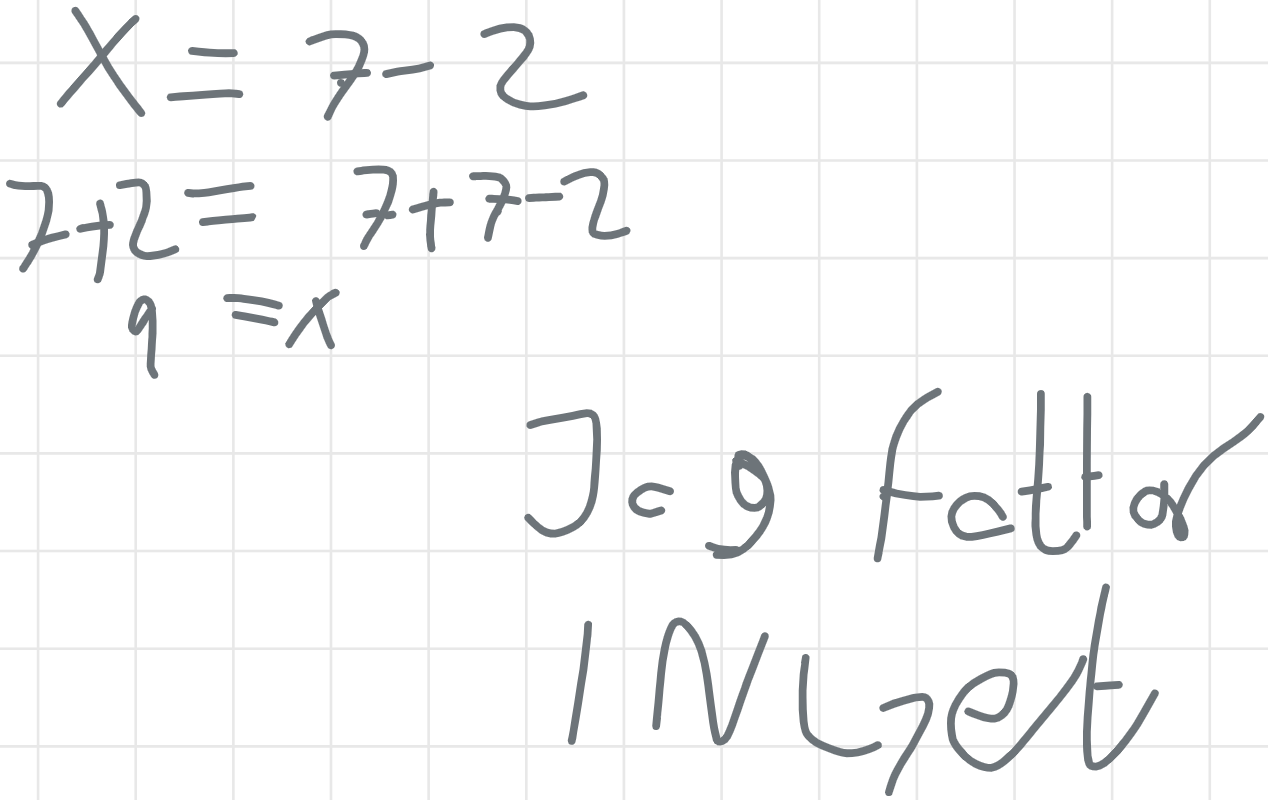 X = 7 - 2
7+2 = 7+7-2
9 = x
Jag fattar
INGet